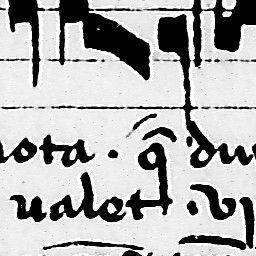 nota . q̄ du
ualet . vi